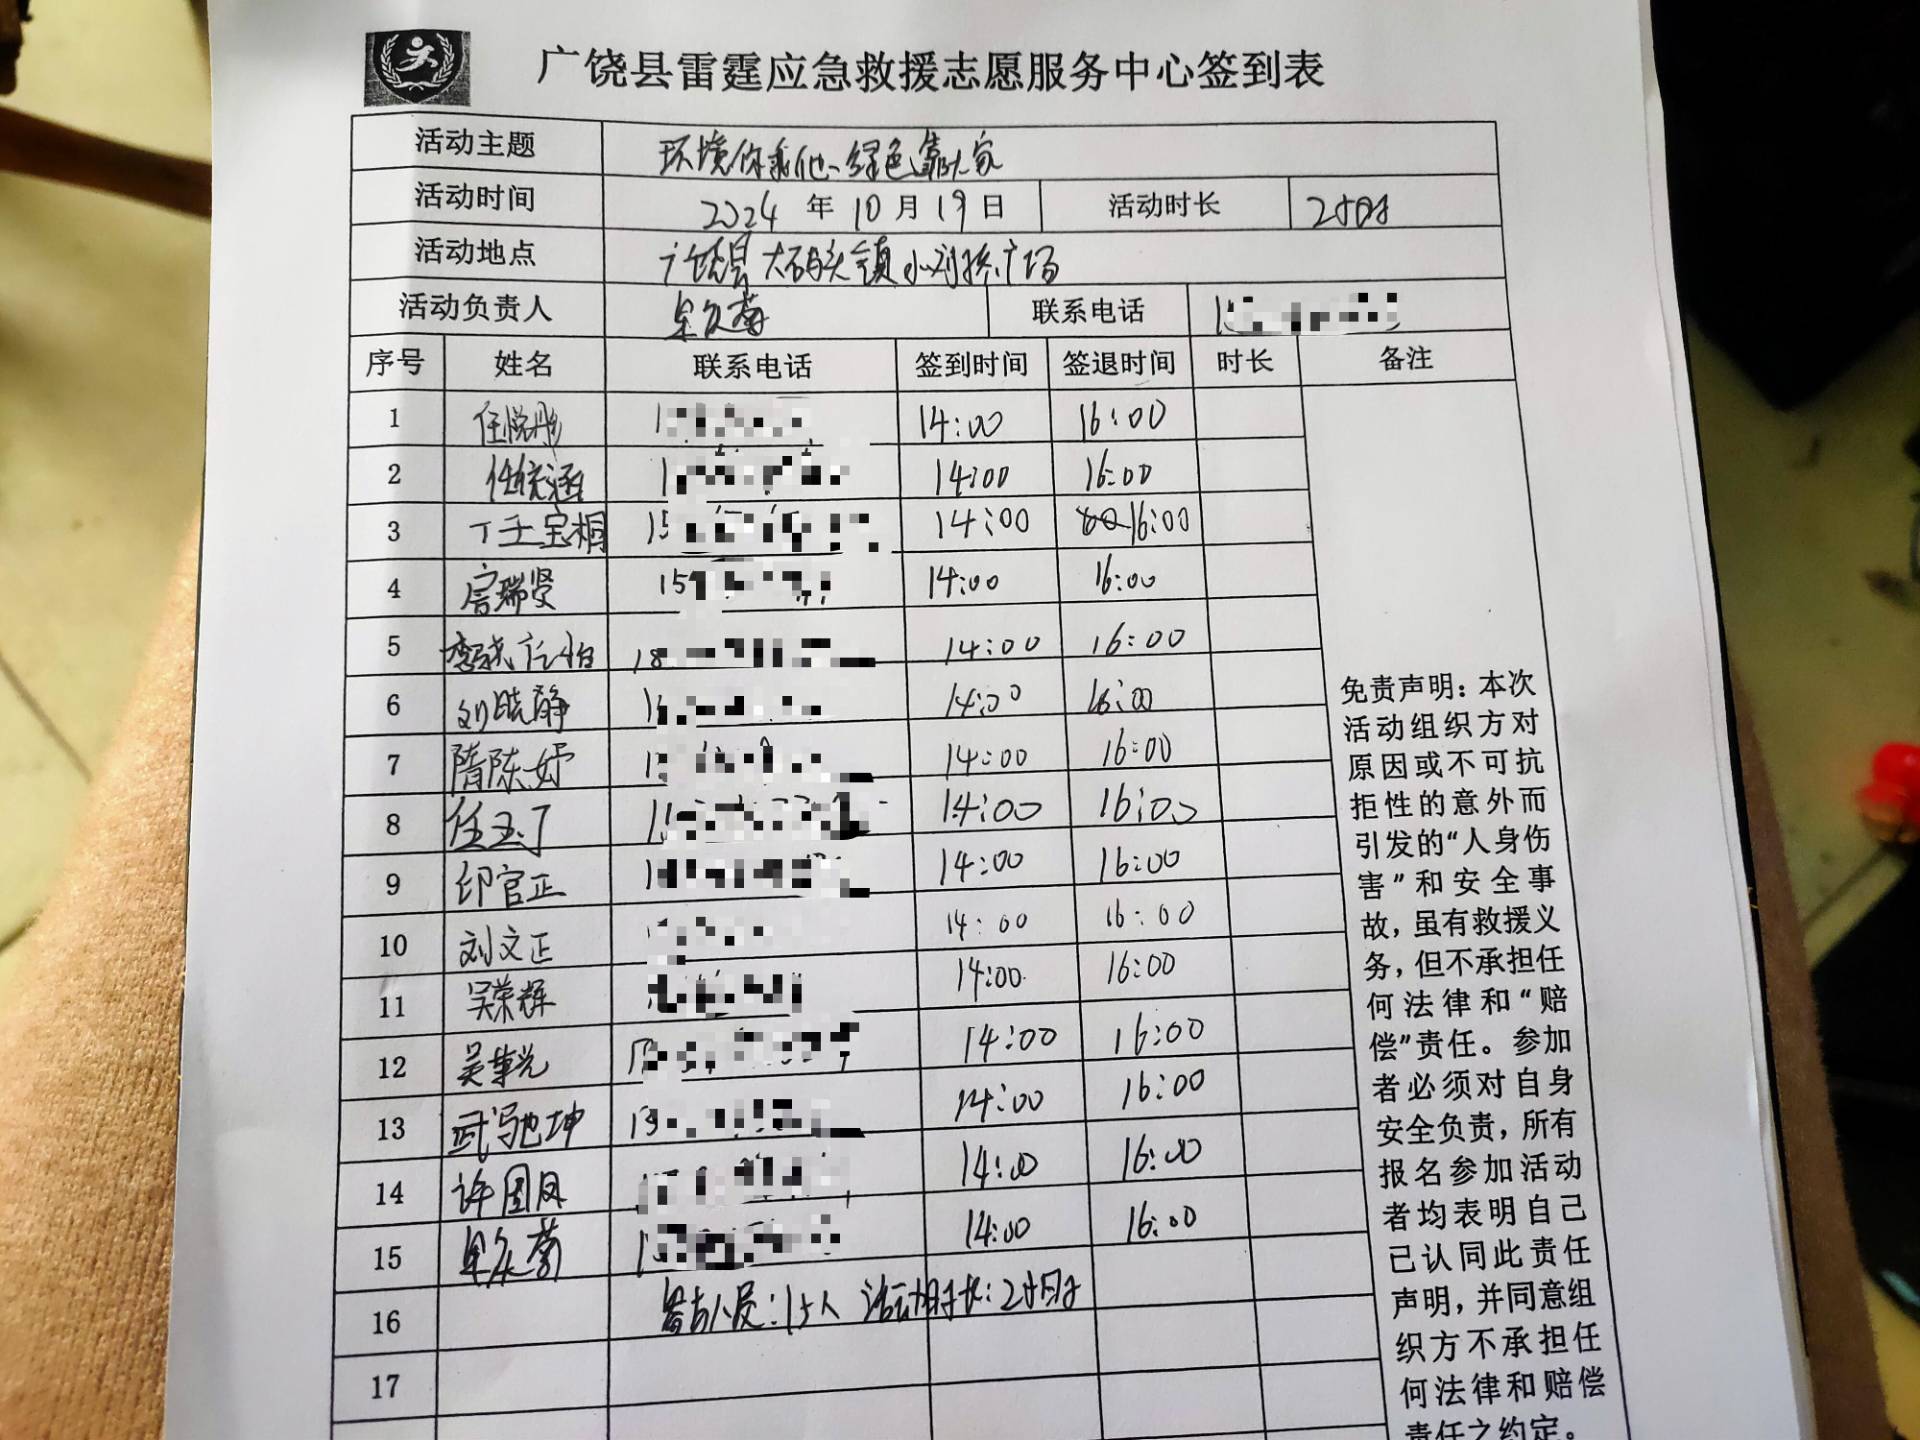 广饶县雷霆应急救援志愿服务中心签到表
活动主题 环境你我他 绿色靠大家
活动时间 2024 年 10 月 19 日 活动时长 2小时
活动地点 广饶县大码头镇小刘桥广场
活动负责人 联系电话 1
序号 姓名 联系电话 签到时间 签退时间 时长 备注
1 任悦彤 1 14:00 16:00
2 1 14:00 16:00
3 丁王宝桐 15 14:00 16:00
4 15 14:00 16:00
5 18 14:00 16:00
6 刘晓静 1 14:00 16:00
7 隋陈妤 1 14:00 16:00
8 任玉丁 1 14:00 16:00
9 印官正 1 14:00 16:00
10 刘文正 14:00 16:00
11 吴荣辉 14:00 16:00
12 14:00 16:00
13 武驰坤 13 14:00 16:00
14 14:00 16:00
15 1 14:00 16:00
16 人员:15人 活动时长:2小时
17
免责声明:本次
活动组织方对
原因或不可抗
拒性的意外而
引发的“人身伤
害”和安全事
故,虽有救援义
务,但不承担任
何法律和“赔
偿”责任。参加
者必须对自身
安全负责,所有
报名参加活动
者均表明自己
已认同此责任
声明,并同意组
织方不承担任
何法律和赔偿
责任之约定。